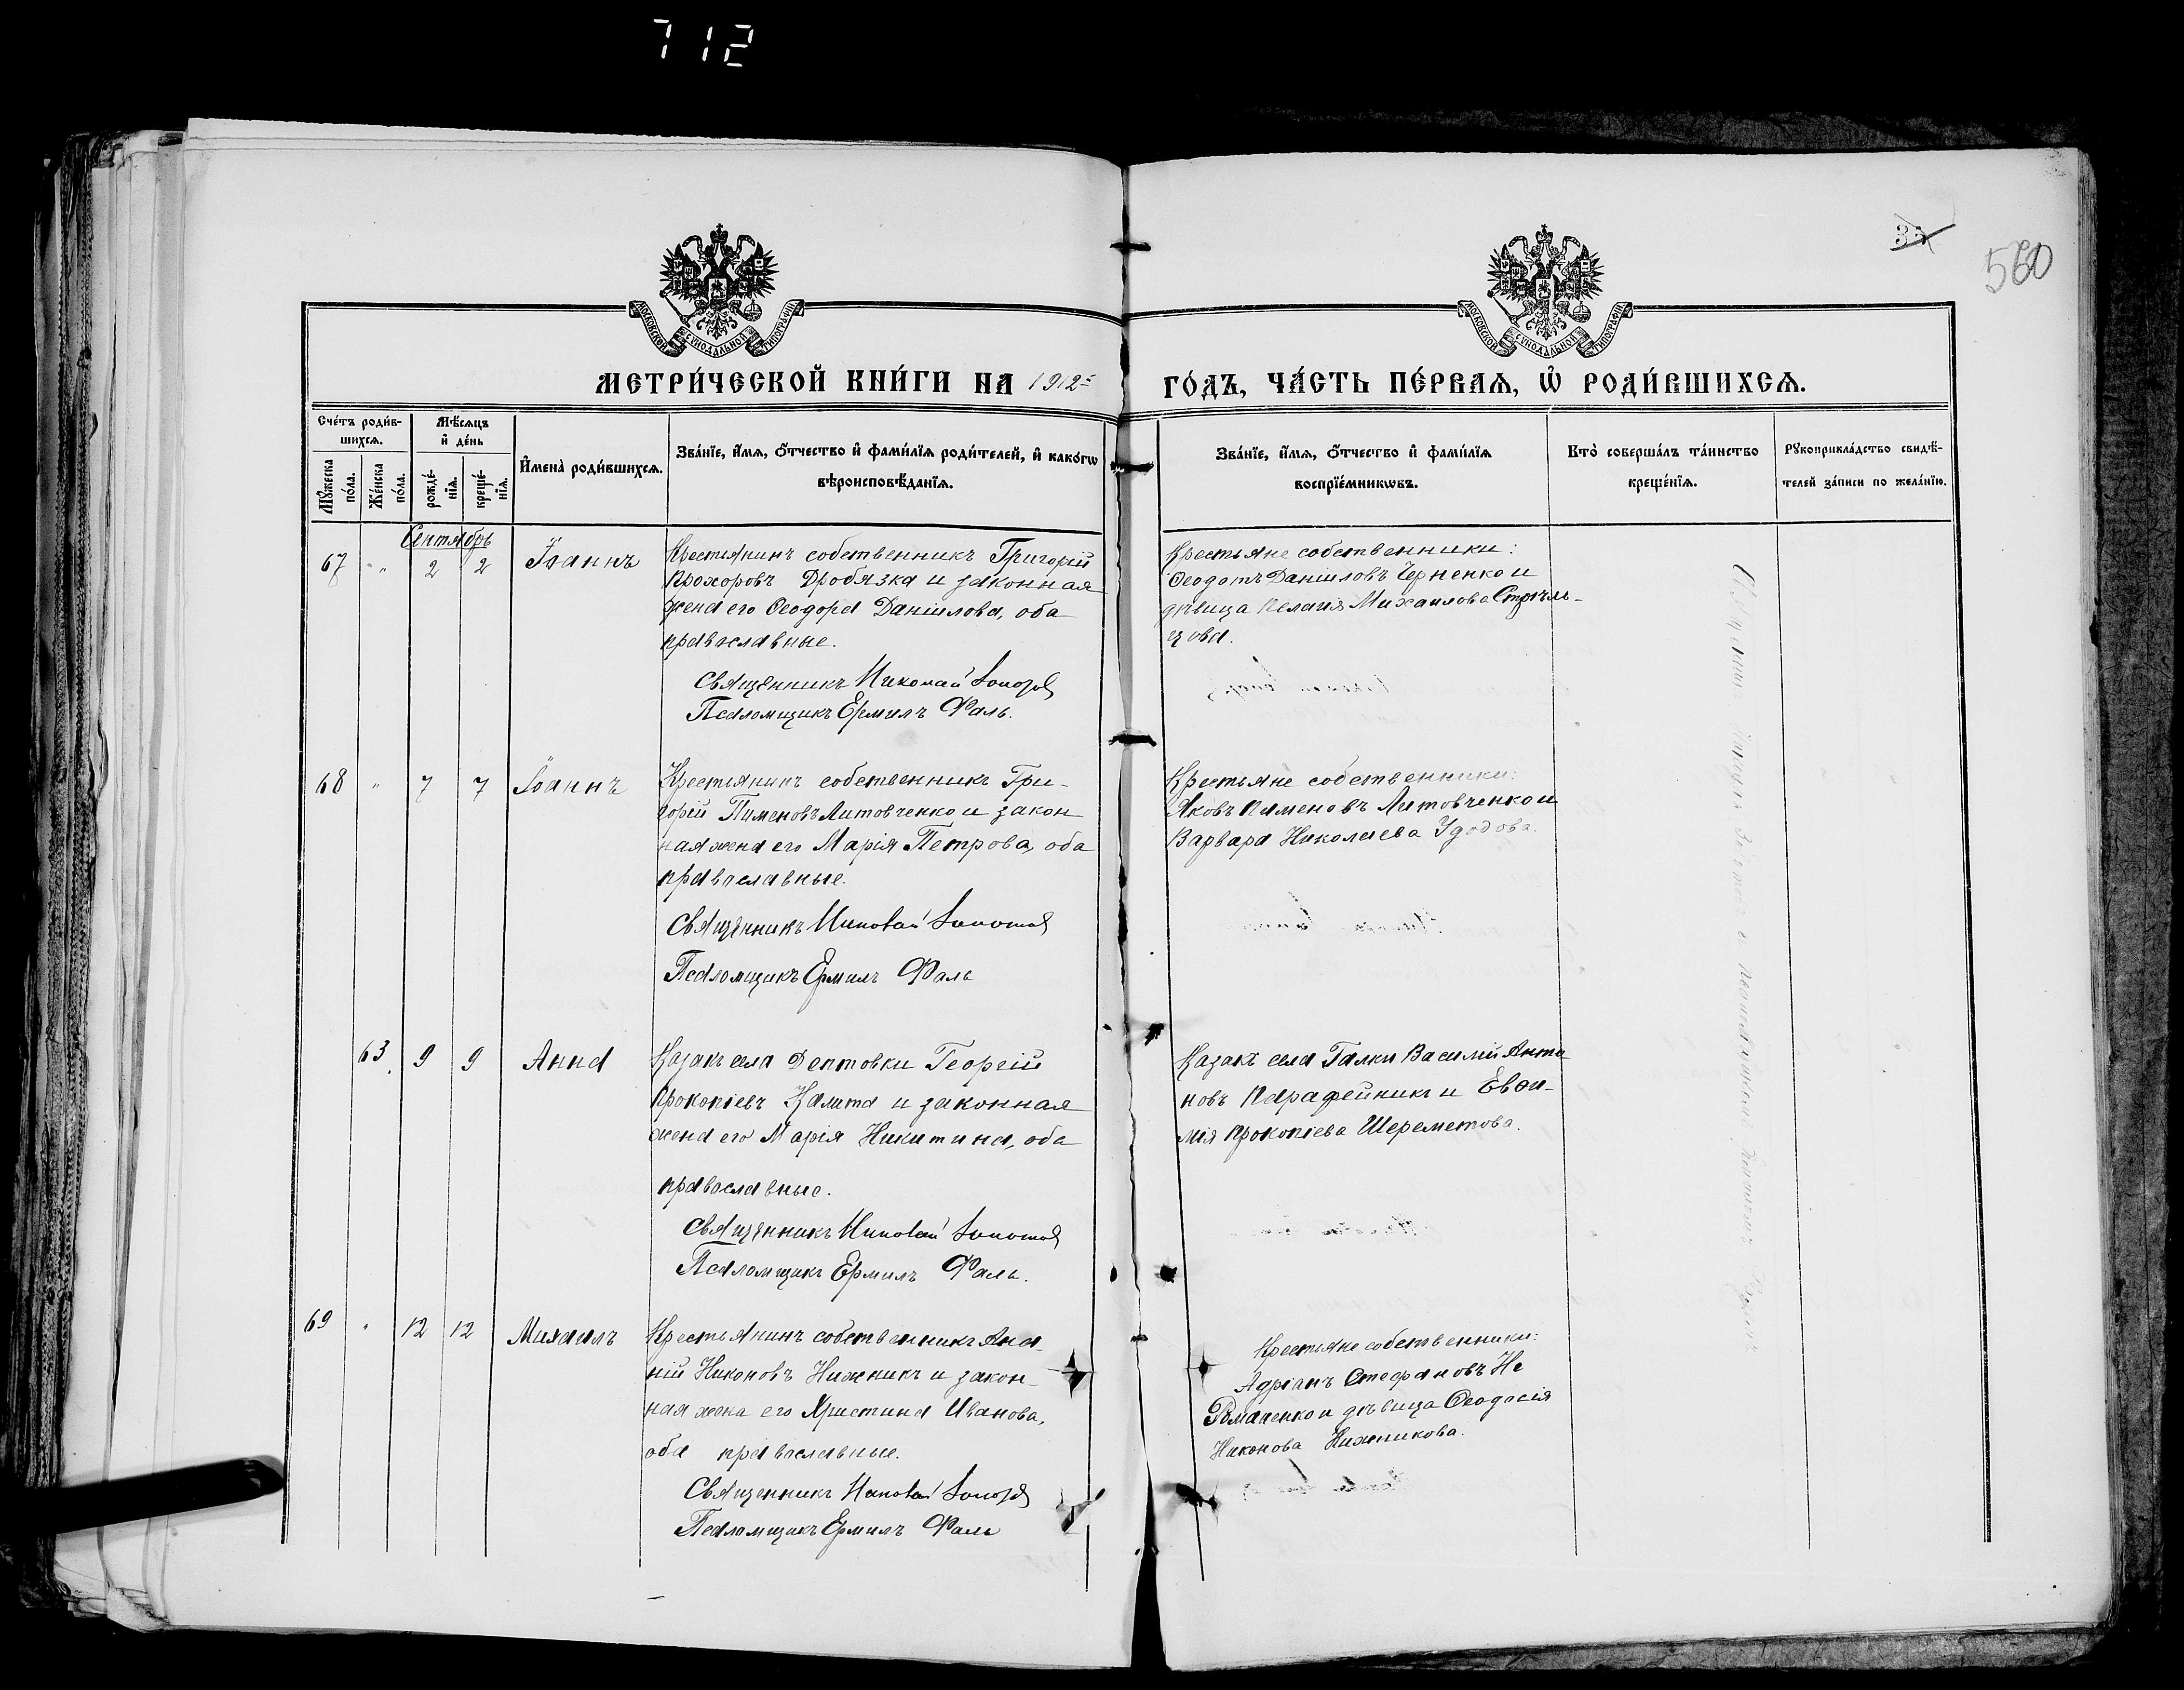 712
35
560
МОСКОВСКОЙ СѴНОДАЛЬНОЙ ТИПОГРАФІИ
МОСКОВСКОЙ СѴНОДАЛЬНОЙ ТИПОГРАФІИ
МЕТРИ́ЧЕСКОЙ КНИ́ГИ НА 1912
ГО́ДЪ, ЧА́СТЬ ПЕ́РВАѦ, Ѽ РОДИ́ВШИХСѦ.
Сче́тъ роди́в-
шихсѧ.
Мꙋ́жеска по́ла.
Же́нска по́ла.
Мѣ́сѧцъ
и҆ де́нь
рожде́-нїѧ.
креще́-нїѧ.
И҆мена̀ роди́вшихсѧ.
Зва́нїе, и҆́мѧ, ѻ҆́тчество и҆ фами́лїѧ роди́телей, и҆ како́гѡ
вѣроисповѣ́данїѧ.
Зва́нїе, и҆́мѧ, ѻ҆́тчество и҆ фами́лїѧ
воспрїе́мникѡвъ.
Кто̀ соверша́лъ та́инство
креще́нїѧ.
Рꙋкоприкла́дство свидѣ́-
телей за́писи по жела́нїю.
Сентябрь
67 " " 2 2 Іоаннъ
Крестьянинъ собственникъ Григорій
Прохоровъ Дробязка и законная
жена его Ѳеодора Даніилова, оба
православные.
Священникъ Николай
Псаломщикъ Ермилъ Фаль.
Крестьяне собственники:
Ѳеодотъ Даніиловъ Черненко и
дѣвица Пелагія Михаилова Стрѣль-
цова.
68 " 7 7 Іоаннъ
Крестьянинъ собственникъ Гри-
горій Пименовъ Литовченко и закон
ная жена его Марія Петрова, оба
православные.
Священникъ Николай
Псаломщикъ Ермилъ Фаль
Крестьяне собственники:
Яковъ Пименовъ Литовченко и
Варвара Николаева Удодова.
63 9 9 Анна
Казакъ села Дептовки Георгій
Прокопіевъ Калита и законная
жена его Марія Никитина, оба
православные.
Священникъ Николай
Псаломщикъ Ермилъ Фаль.
Казакъ села Галки Василій Анто
новъ Парафейникъ и Евѳи-
мія Прокопіева Шереметова.
69 " 12 12 Михаилъ
Крестьянинъ собственникъ Ана-
ній Никоновъ Нижникъ и закон-
ная жена его Христина Иванова,
оба православные.
Священникъ Николай
Псаломщикъ Ермилъ Фаль
Крестьяне собственники:
Адріанъ Стефановъ Не
Романенко и дѣвица Ѳеодосія
Никонова Нижникова.